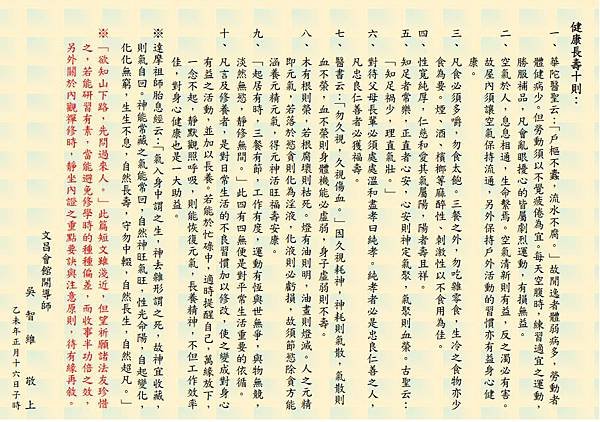 健康長壽十則：
一、華陀醫聖云：「戶樞不蠹，流水不腐。」故閒逸者體弱病多，勞動者
體健病少。但勞動須以不覺疲倦為宜。每天空腹時，練習適宜之運動，
勝服補品，凡會亂眼擾心的皆屬劇烈運動，有損無益。
二、空氣於人，息息相通，生命繫焉。空氣清新則有益，反之濁必有害。
故屋內須讓空氣保持流通，另外保持戶外活動的習慣亦有益身心健
康。
三、凡食必須多嚼，勿食太飽。三餐之外，勿吃雜零食，生冷之食物亦少
食為要。煙、酒、檳榔等麻醉性、刺激性以不食用為佳。
四、性寬純厚，仁慈和愛其氣屬陽，陽者壽且祥。
五、知足者常樂，正直者心安，心安則神定氣聚，氣聚則血榮。古聖云：
「知足禍少，理直氣壯。」
六、對待父母長輩必須處處溫和盡孝曰純孝。純孝者必是忠良仁善之人，
凡忠良仁善者必獲福壽。
七、醫書云：「勿久視，久視傷血。」因久視耗神，神耗則氣散，氣散則
血不榮，血不榮則身體機能必虛弱，身子虛弱則不壽。
八、木有根則榮，若根腐壞則枯死。燈有油則明，油盡則燈滅。人之元精
即元氣，若落於慾貪則化為淫液，化液則必虧損，故須節慾除貪方能
涵養元精元氣，得元神活旺福壽安康。
九、「起居有時，三餐有節，工作有度，運動有恆與世無爭，與物無競，
淡然無慾，靜修無間。」此四有四無便是對平常生活重要的依循。
十、凡言及修養者，是對日常生活的不良習慣加以修改，使之變成對身心
有益之活動，並加以長養。若能於忙碌中，適時提醒自己，萬緣放下，
一念不起，靜默觀照呼吸，則能恢復元氣，長養精神，不但工作效率
佳，對身心健康也是一大助益。
※達摩祖師胎息經云：「氣入身中謂之生，神去離形謂之死，故神宜收藏，
則氣自回。神能常藏之氣能常回，自然神旺氣旺，性光命陽，自起變化，
化化無窮，生生不息，自然長壽，守勿中輟，自然長生，自然超凡。」
※「欲知山下路，先問過來人。」此篇短文雖淺近，但望祈願諸法友珍惜
之，若能研習有素，當能避免修學時的種種偏差，而收事半功倍之效，
另外關於內觀禪修時，靜坐內證之重點要訣與注意原則，待有緣再敘。
文昌會館開導師
吳智維 敬上
乙未年正月十六日子時